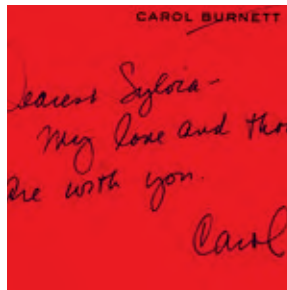 CAROL BURNETT
Dearest Sylvia -
My love and tho
are with you.
Carol